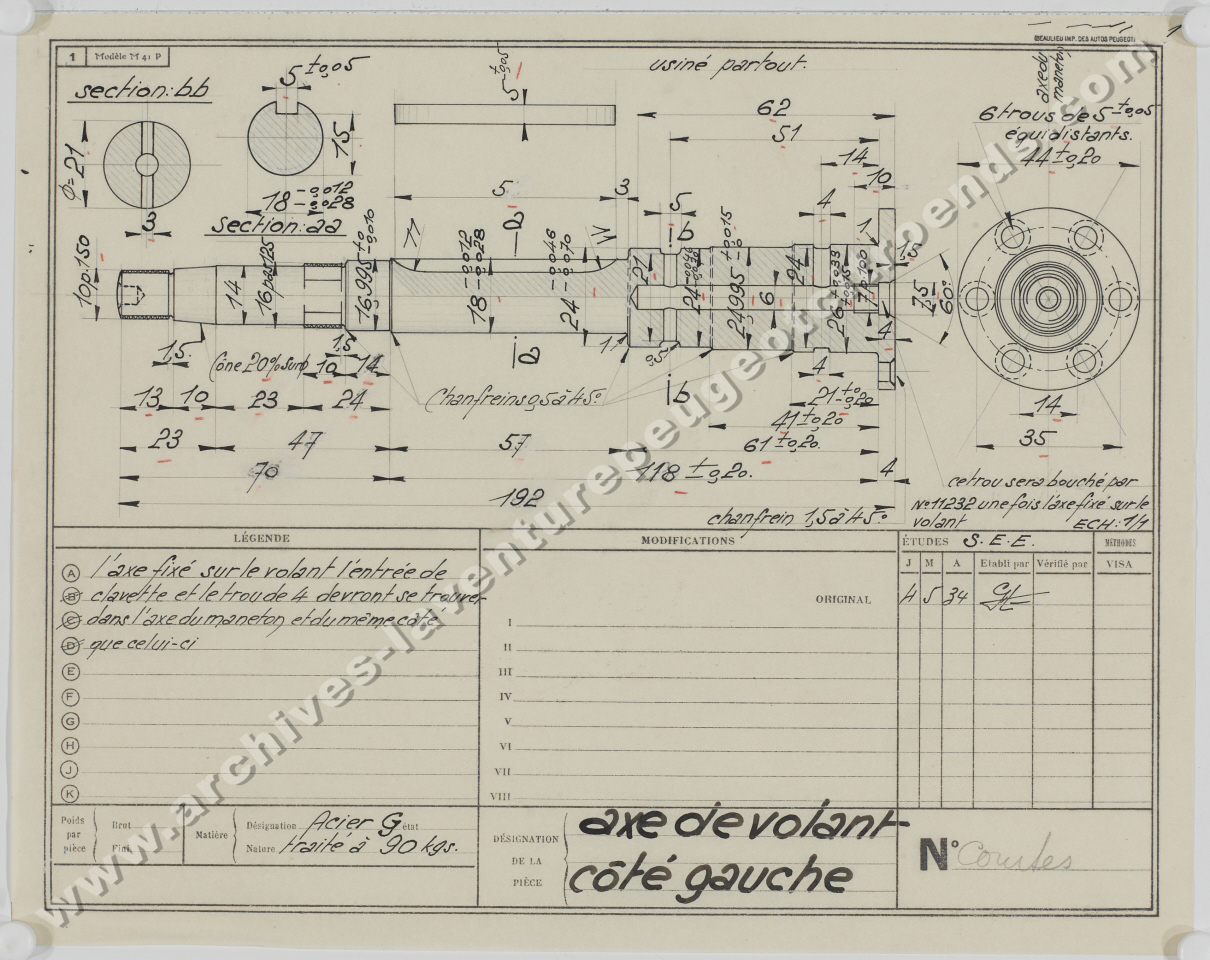 (BEAULIEU IMP. DES AUTOS PEUGEOT)
1 Modèle M 41 P
section: bb
5 ±0,05
usiné partout.
axe du maneton
6 trous de 5 ±0,05
équidistants.
44 ±0,20
62
51
14
10
φ=21
3
15
18 -0,012 -0,028
section: aa
5
3
5
4
1
1,5
b
10 p.150
14
16 pas 125
16,995
18 -0,012 -0,028
24 -0,046 -0,070
21
24
24,995 +0,015 -0
6
24
26
7 p.100
7,5
60°
1,5
(cône 20% sur)
10
1,5
14
11
0,5
4
4
b
Chanfreins 0,5 à 45°
13
10
23
24
21 ±0,20
41 ±0,20
61 ±0,20.
23
47
57
118 ±0,20.
4
70
192
14
35
chanfrein 1,5 à 45°
ce trou sera bouché par
N° 11232 une fois l'axe fixé sur le
volant
ECH: 1/1
LÉGENDE
A l'axe fixé sur le volant l'entrée de
B clavette et le trou de 4 devront se trouver
C dans l'axe du maneton et du même côté
D que celui-ci
E
F
G
H
J
K
MODIFICATIONS
ORIGINAL
I
II
III
IV
V
VI
VII
VIII
ÉTUDES S.E.E.
MÉTHODES
J M A Etabli par Vérifié par VISA
4 5 34
Poids par pièce
Brut
Fini
Matière
Désignation Acier G état
Nature traité à 90 kgs.
DÉSIGNATION DE LA PIÈCE
axe de volant
côté gauche
N° Courtes
www.archives-laventurepeugeotcitroends.com